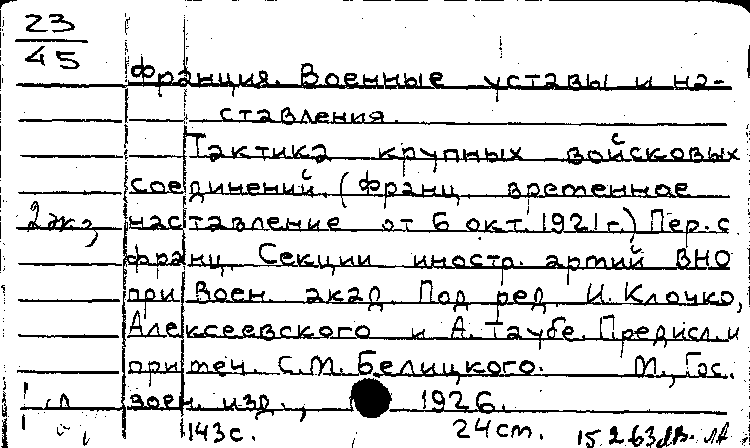 23
45
Франция. Военные уставы и на-
ставления.
Тактика крупных войсковых
соединений. (Франц. временное
2 экз, наставление от 6 окт. 1921 г.) Пер. с
франц. Секции иностр. артий ВНО
при Воен. акад. Под ред. И. Клочко,
Алексеевского и А. Таубе. Предисл. и
примеч. С.М. Белицкого. М., Гос.
воен. изд., 1926.
143 с. 24 cm. 15.2.63